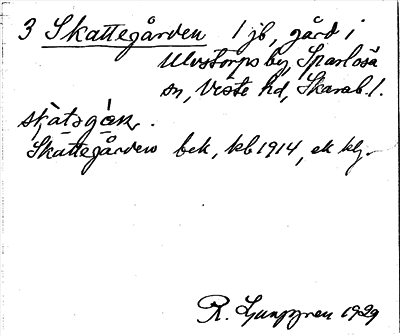 3 Skattegården 1 jb, gård i
Ulvstorps by, Sparlösa
sn, Viste hd, Skarab. l.
skàtagɷ́ɳ.
Skattegården bek, kb 1914, ek klj.
R. Ljunggren 1929